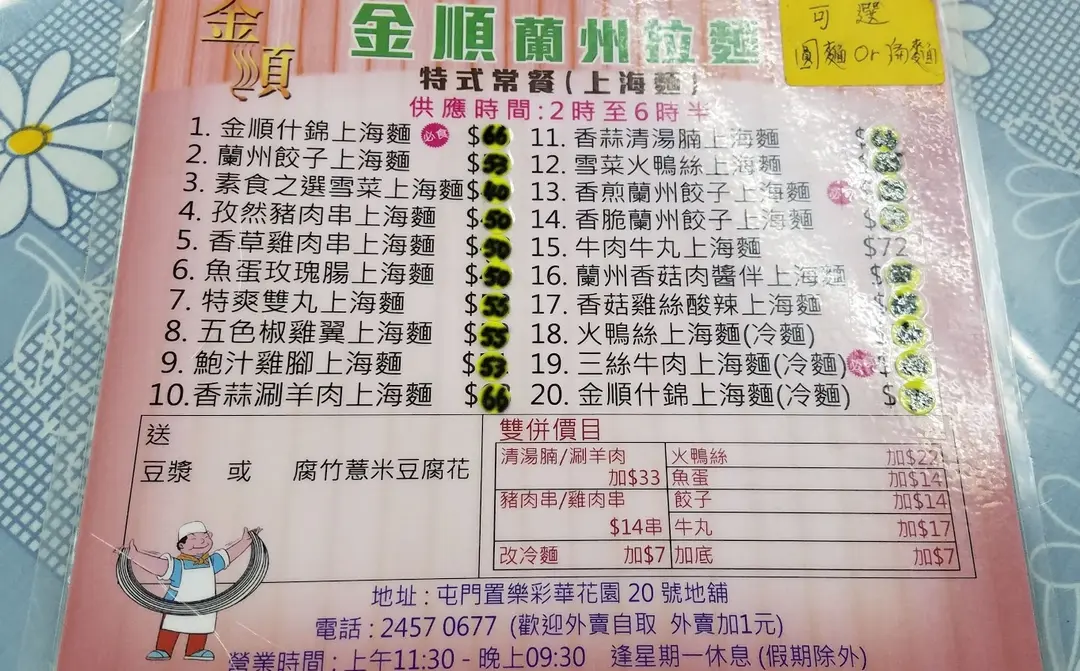 金順
金順蘭州拉麵
可選
圓麵 Or
特式常餐(上海麵)
供應時間:2時至6時半
1. 金順什錦上海麵 必食 $66
2. 蘭州餃子上海麵 $53
3. 素食之選雪菜上海麵 $40
4. 孜然豬肉串上海麵 $50
5. 香草雞肉串上海麵 $50
6. 魚蛋玫瑰腸上海麵 $50
7. 特爽雙丸上海麵 $55
8. 五色椒雞翼上海麵 $55
9. 鮑汁雞腳上海麵 $53
10. 香蒜涮羊肉上海麵 $66
11. 香蒜清湯腩上海麵 $
12. 雪菜火鴨絲上海麵 $
13. 香煎蘭州餃子上海麵 $
14. 香脆蘭州餃子上海麵 $
15. 牛肉牛丸上海麵 $72
16. 蘭州香菇肉醬伴上海麵 $
17. 香菇雞絲酸辣上海麵 $
18. 火鴨絲上海麵(冷麵) $
19. 三絲牛肉上海麵(冷麵) $
20. 金順什錦上海麵(冷麵) $
送
豆漿 或 腐竹薏米豆腐花
雙併價目
清湯腩/涮羊肉 加$33
豬肉串/雞肉串 $14串
改冷麵 加$7
火鴨絲 加$22
魚蛋 加$14
餃子 加$14
牛丸 加$17
加底 加$7
地址 : 屯門置樂彩華花園 20 號地舖
電話 : 2457 0677 (歡迎外賣自取 外賣加1元)
營業時間 : 上午11:30 - 晚上09:30 逢星期一休息 (假期除外)